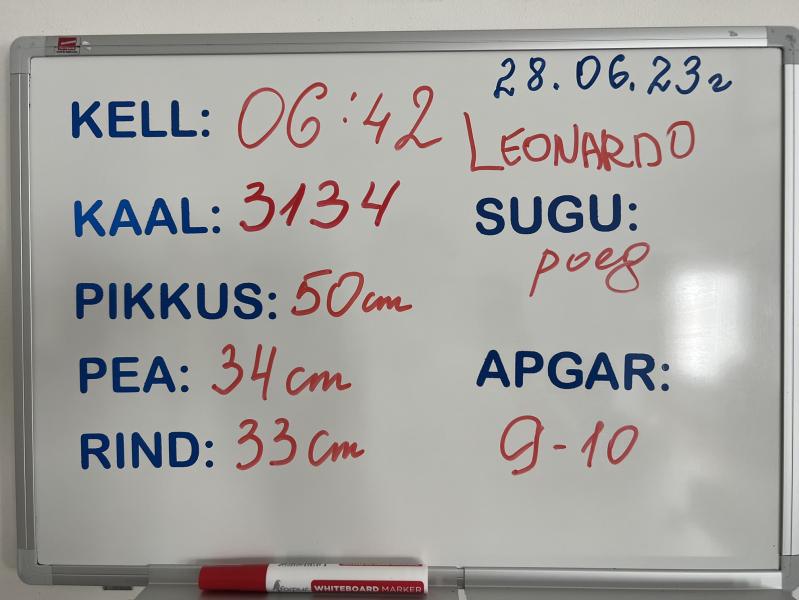 28.06.23г
KELL: 06:42
LEONARDO
KAAL: 3134
SUGU:
poeg
PIKKUS: 50cm
PEA: 34cm
APGAR:
RIND: 33cm
9-10
WHITEBOARD MARKER